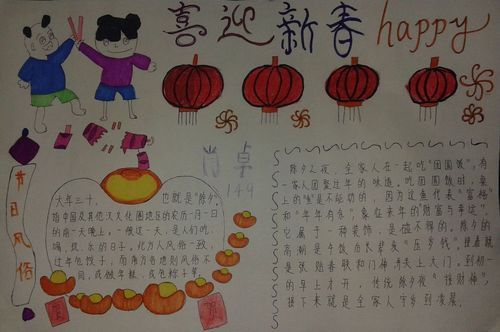 喜迎新春 happy
肖卓
149
节日风俗
大年三十, 也就是"除夕"
指中国及其他汉文化圈地区的农历一月一日
的前一天晚上。一般这一天,是人们吃、
喝、玩、乐的日子。北方人风俗一致,
过年包饺子,而南方各地则风俗不
同,或做年糕,或包粽子等。
除夕之夜,全家人在一起吃"团圆饭",有
一家人团聚过年的味道。吃团圆饭时,桌
上的"鱼"是不能动的,因为这鱼代表"富裕"
和"年年有余",象征来年的财富与幸运",
它属于一种装饰,是碰不得的。除夕的
高潮是午饭后长辈发"压岁钱",接着就
是张贴春联和门神,关上大门。到初一
的早上才开,传统除夕夜"接财神",
接下来就是全家人守岁到凌晨。
贺